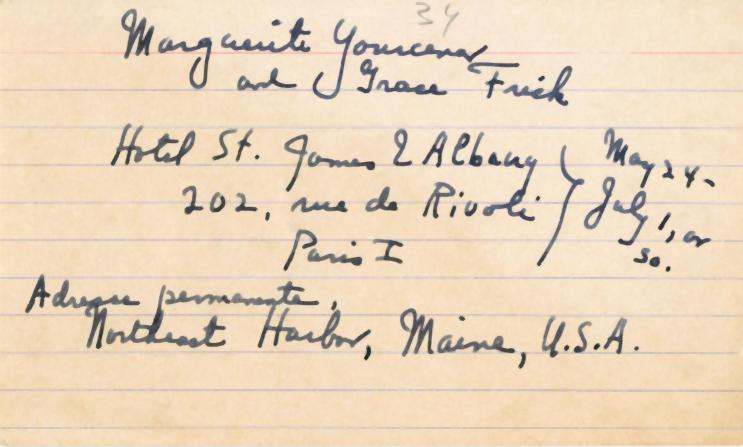 34
Marguerite Yourcenar
and Grace Frick
Hotel St. James & Albany
202, rue de Rivoli
Paris I
May 24-
July 1, or
so.
Adresse permanente,
Northeast Harbor, Maine, U.S.A.